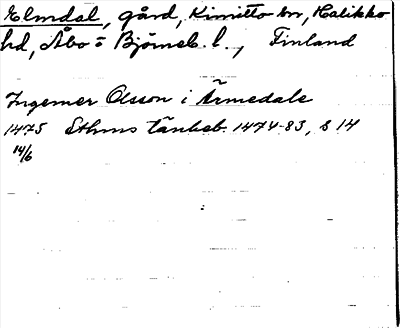 Elmdal, gård, Kimitto sn, Halikko
hd, Åbo o Björneb. l., Finland
Ingemer Olsson i Ärmedale
1475 Sthms tänkeb. 1474-83, s 14
14/6